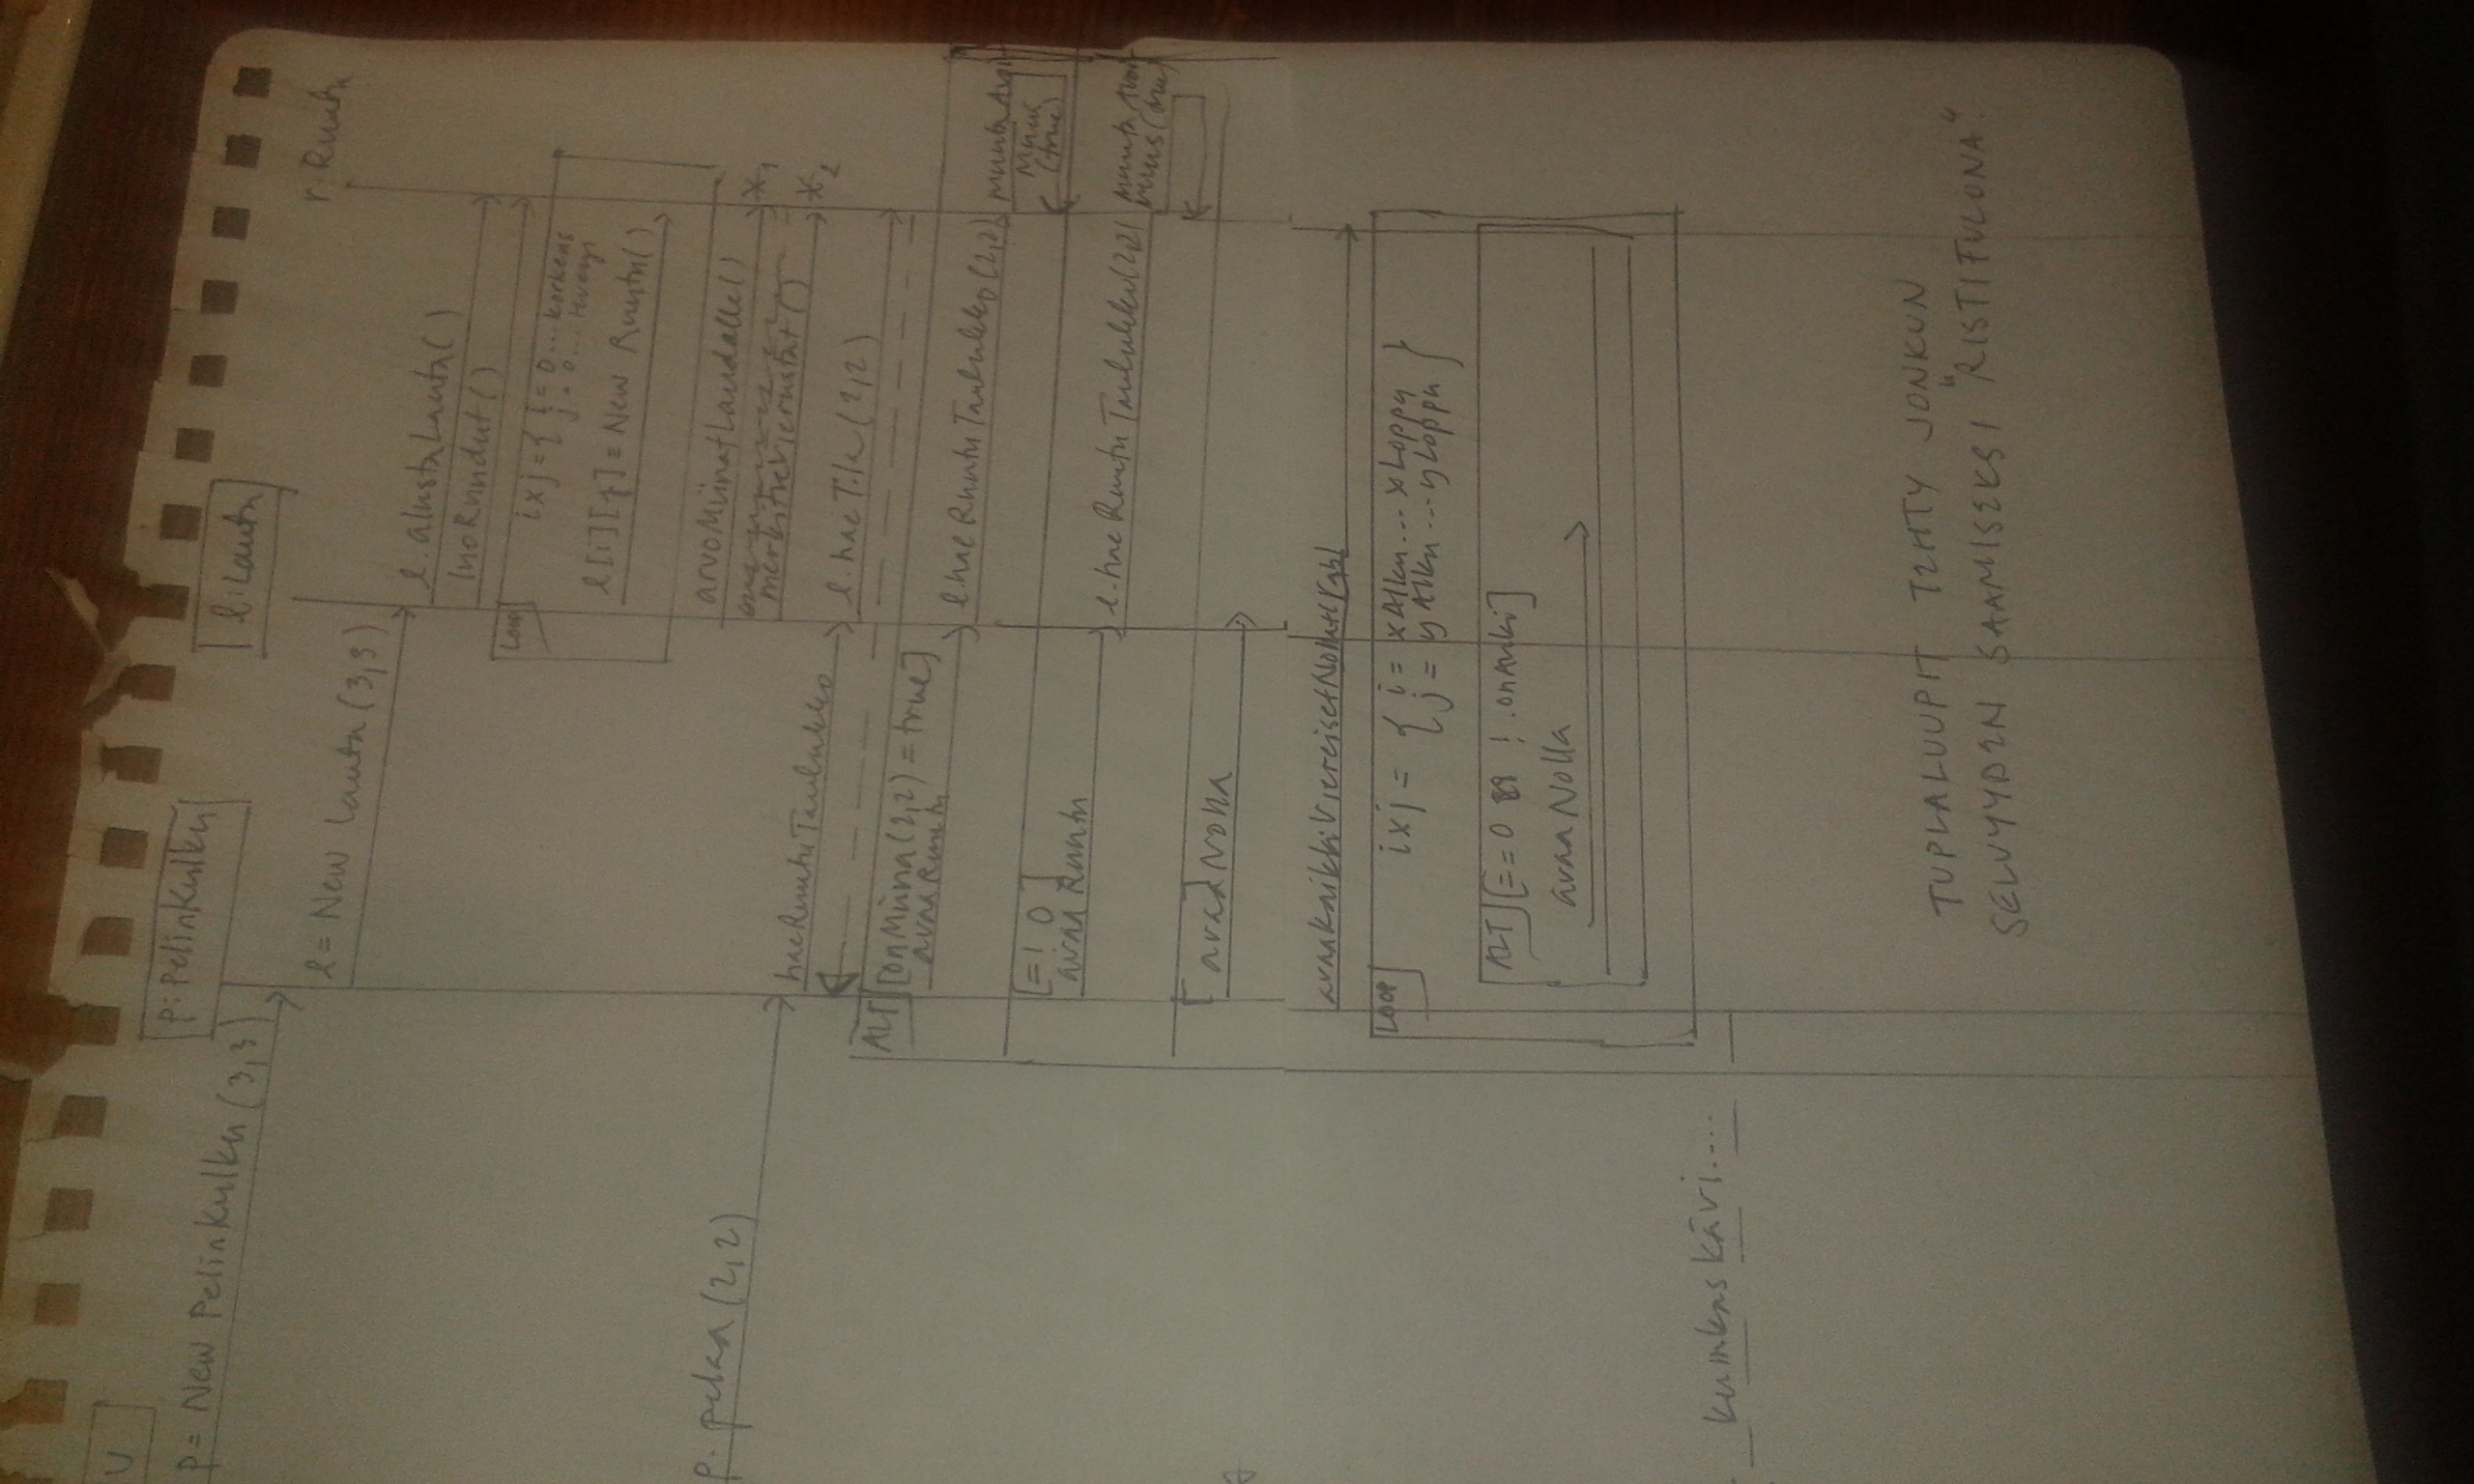 U
p = New Pelinkulku (3,3)
p: Pelinkulku
l = New Lauta (3,3)
l: Lauta
r: Ruutu
l.alustaLauta()
luoRuudut()
Loop
ixj = { i = 0 ... korkeus
j = 0 ... leveys
l[i][j] = New Ruutu()
arvoMiinatLaudalle()
p.pelaa(2,2)
haeRuutuTaulukko
l.haeTila(2,2)
x1
x2
ALT [onMiina(2,2) = true]
avaaRuutu
l.haeRuutuTaulukko(2,2)
muuta
(true)
[= ! 0]
avaaRuutu
l.haeRuutuTaulukko(2,2)
muuta
avaaNolla
avaaKaikkiViereisetNollat
Loop
ixj = { i = xAlku ... xLoppu
j = yAlku ... yLoppu }
ALT [== 0 && ! .onAuki]
avaaNolla
kunnes kävi....
TUPLALUUPIT TEHTY JONKUN
SELVYYDEN SAAMISEKSI "RISTITULONA".